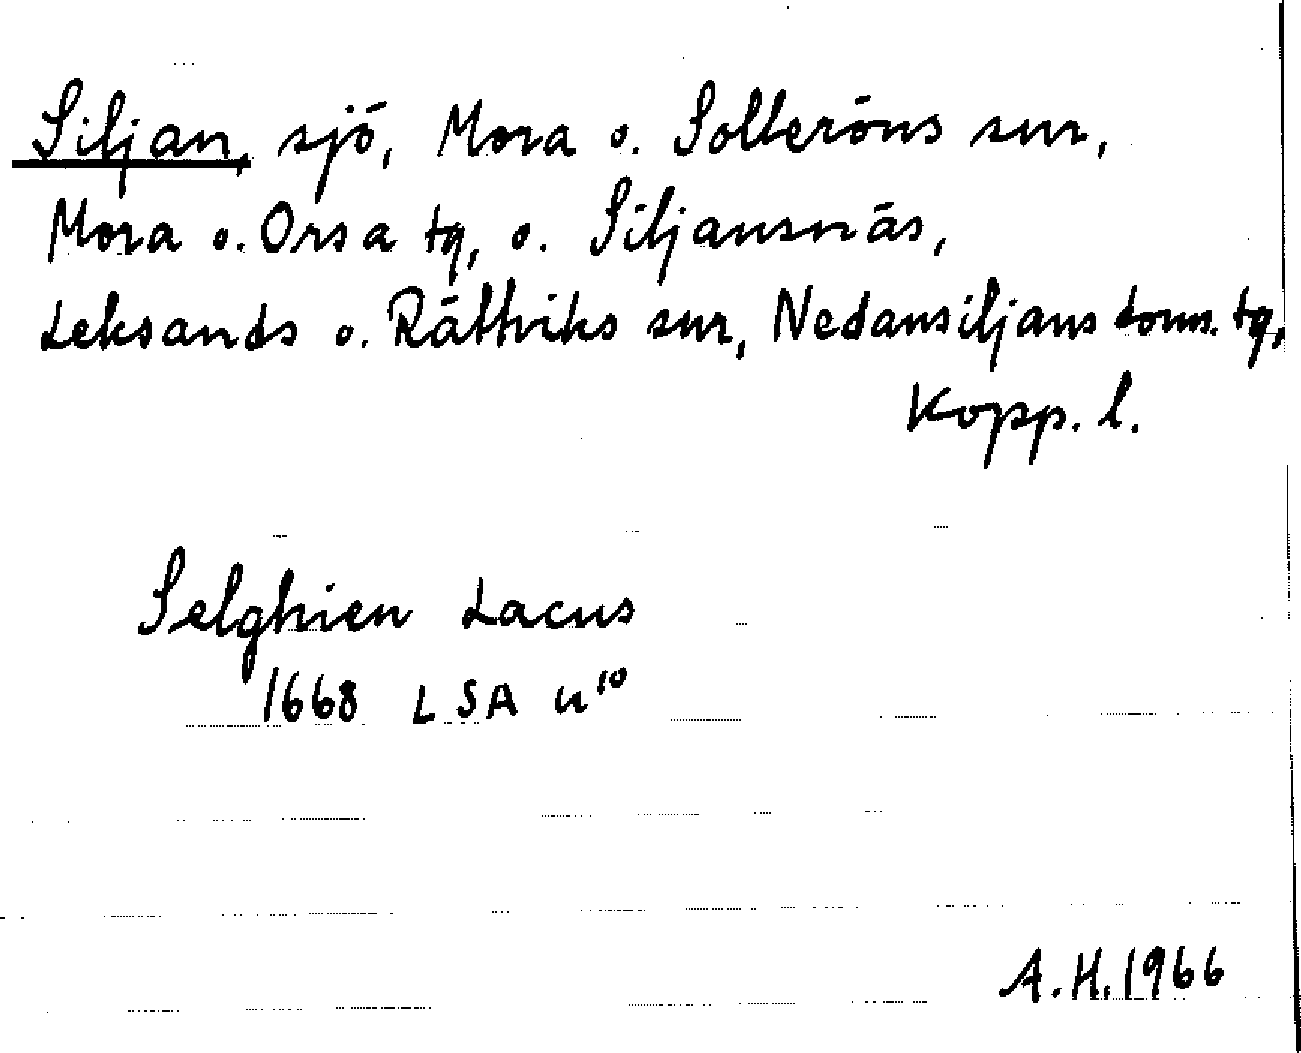 Siljan, sjö, Mora o. Solleröns snr,
Mora o. Orsa tg, o. Siljansnäs,
Leksands o. Rättviks snr, Nedansiljans doms. tg,
Kopp. l.
Selghien Lacus
1668 LSA u¹⁰
A.H. 1966